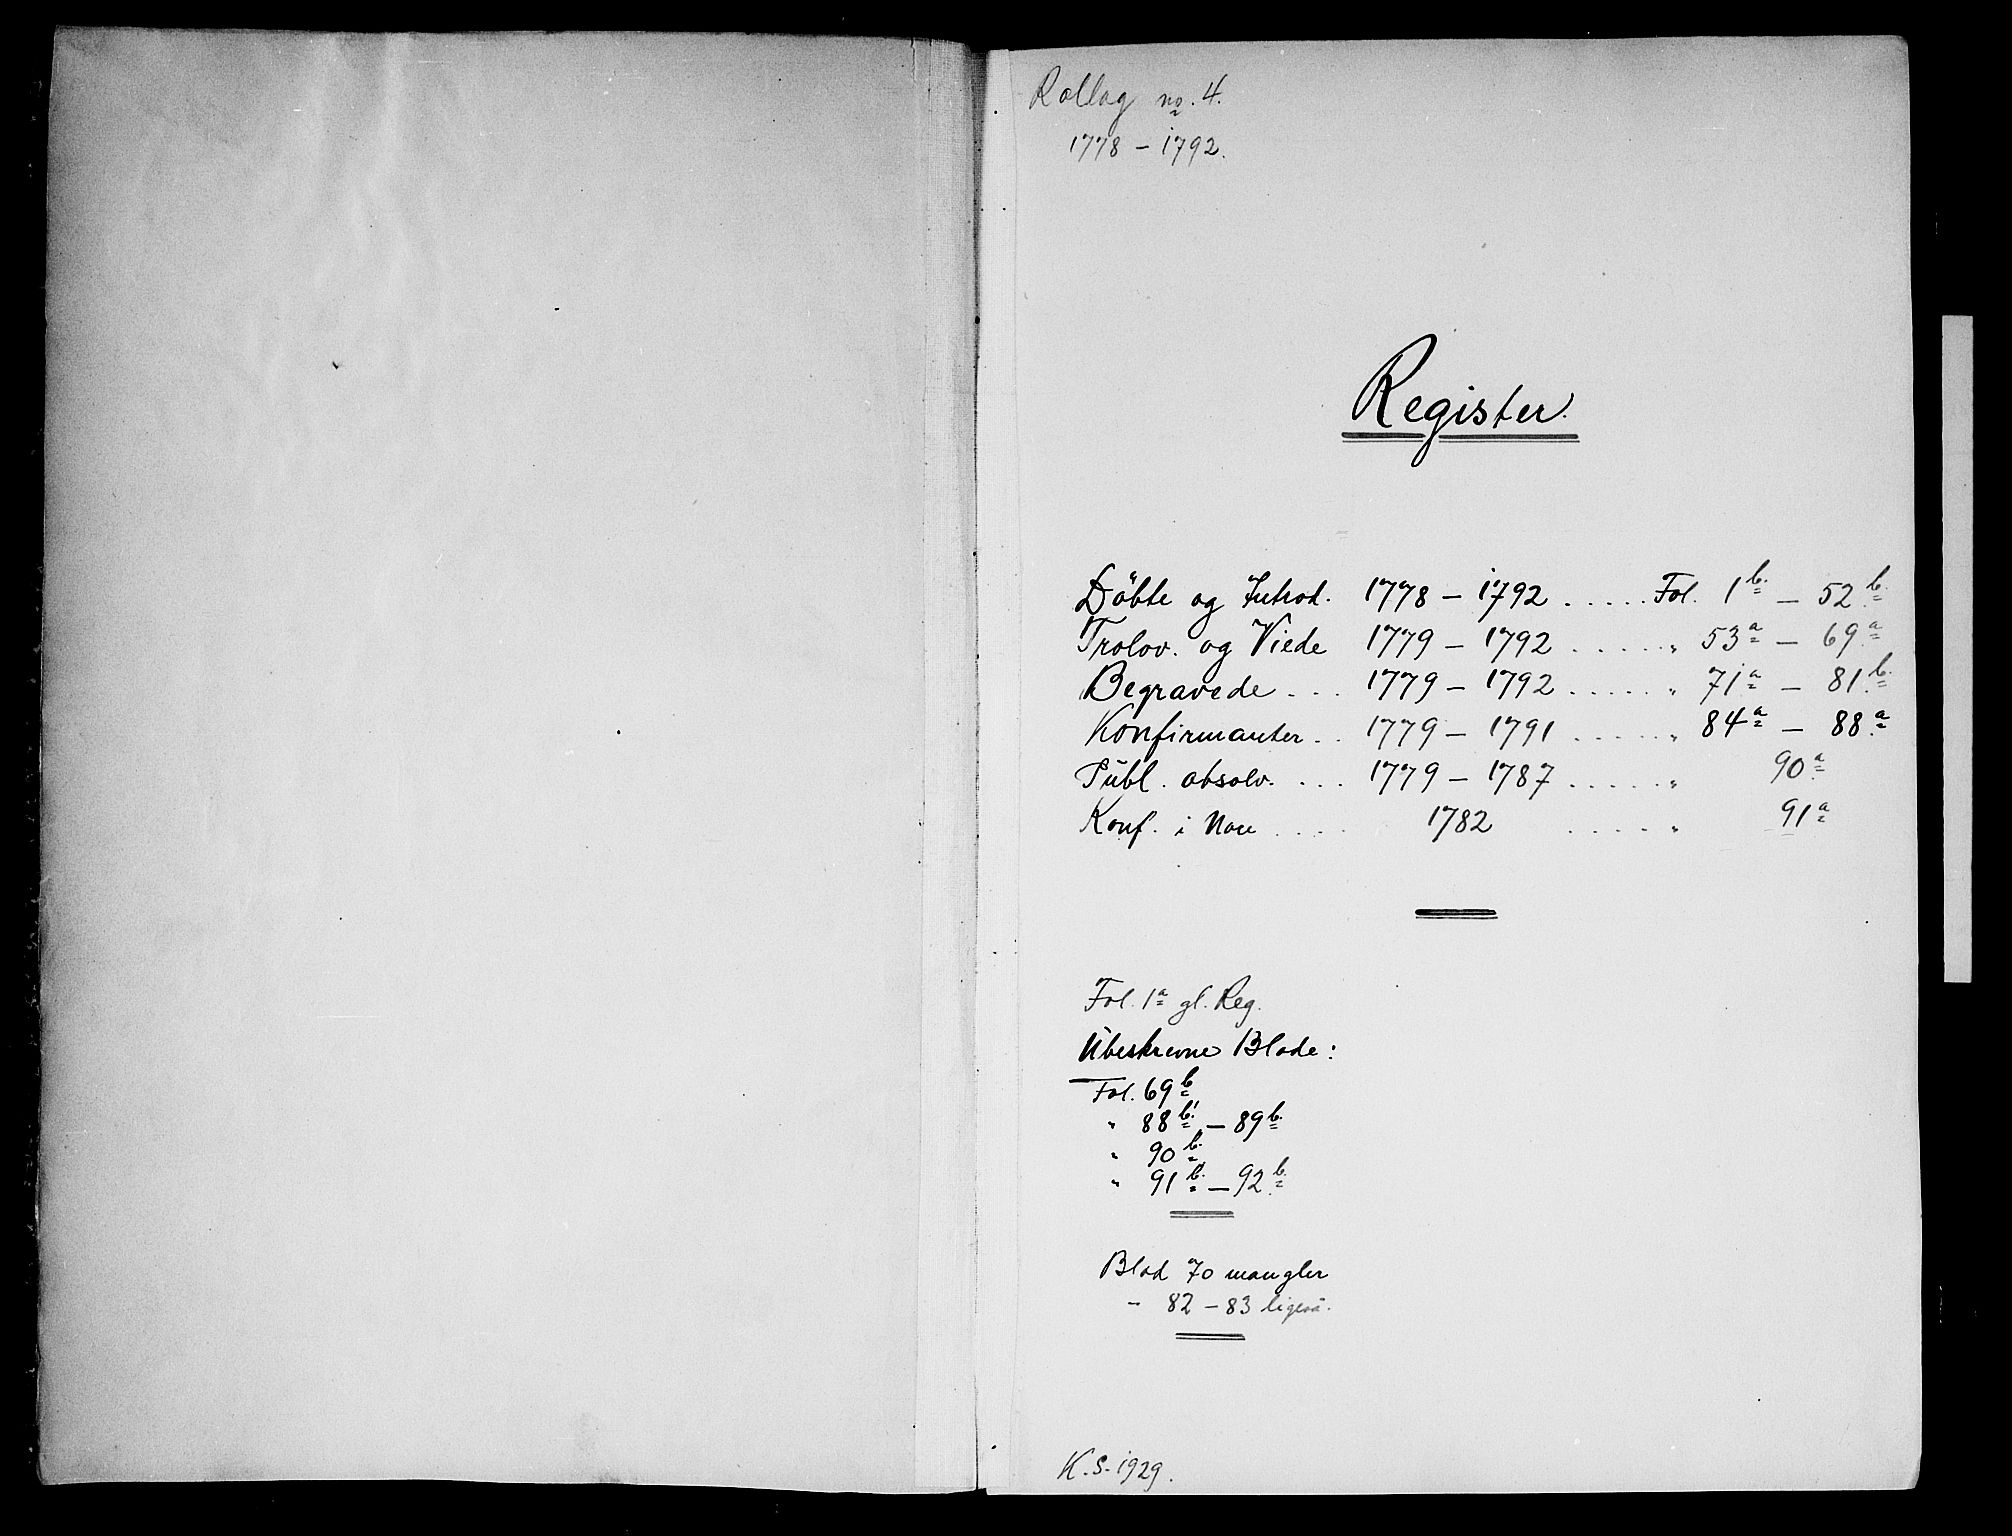 Rollag no. 4.
1778 – 1792.
Register.
Döbte og Introd. 1778 – 1792 ..... Fol. 1b. – 52b.
Trolov. og Viede 1779 – 1792 ..... " 53a – 69a
Begravede ... 1779 – 1792 ..... " 71a – 81b.
Konfirmanter .. 1779 – 1791 ..... " 84a – 88a
Publ. absolv. ... 1779 – 1787 ..... " 90a
Konf. i Nou .... 1782 ..... " 91a
Fol. 1a gl. Reg.
Ubeskrevne Blade:
Fol. 69b
" 88b. – 89b.
" 90b.
" 91b. – 92b.
Blad 70 mangler
" 82 – 83 ligeså.
K. S. 1929.